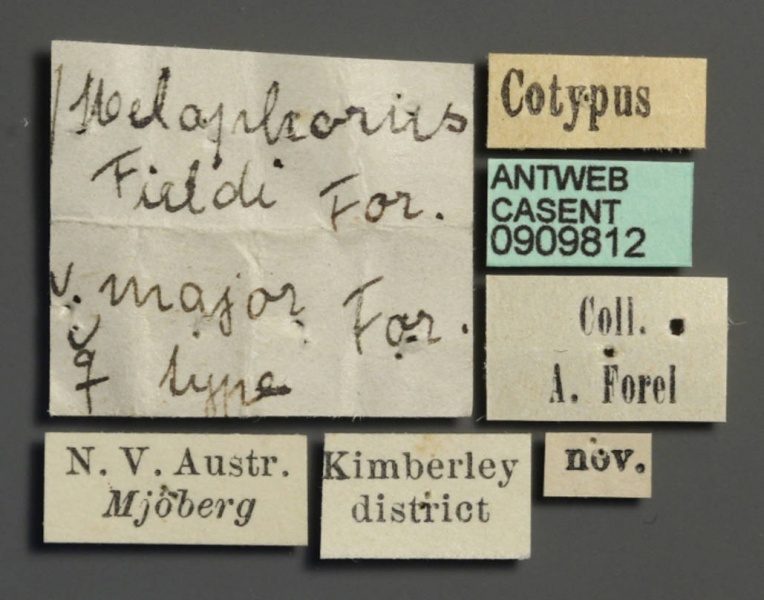 Melophorus
Fieldi For.
v. major For.
☿ type
Cotypus
ANTWEB
CASENT
0909812
Coll.
A. Forel
N. V. Austr.
Mjöberg
Kimberley
district
nov.